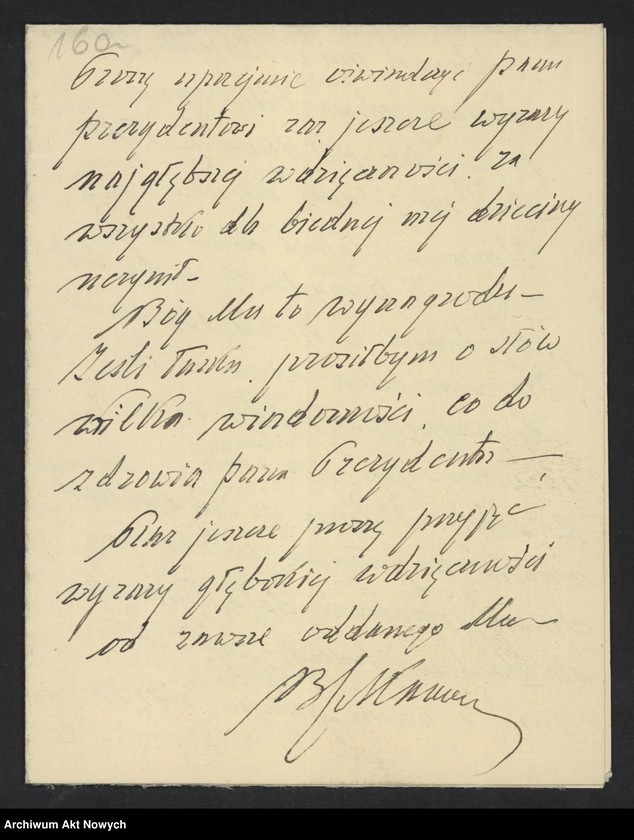 160a
Proszę uprzejmie oświadczyć panu
prezydentowi raz jeszcze wyrazy
najgłębszej wdzięczności za
wszystko dla biednej mej dzieciny
uczynił –
Bóg Mu to wynagrodzi –
Jeśli łaska, prosiłbym o słów
kilka wiadomości, co do
zdrowia pana Prezydenta –
raz jeszcze proszę przyjąć
wyrazy głębokiej wdzięczności
od zawsze oddanego Mu –
Archiwum Akt Nowych